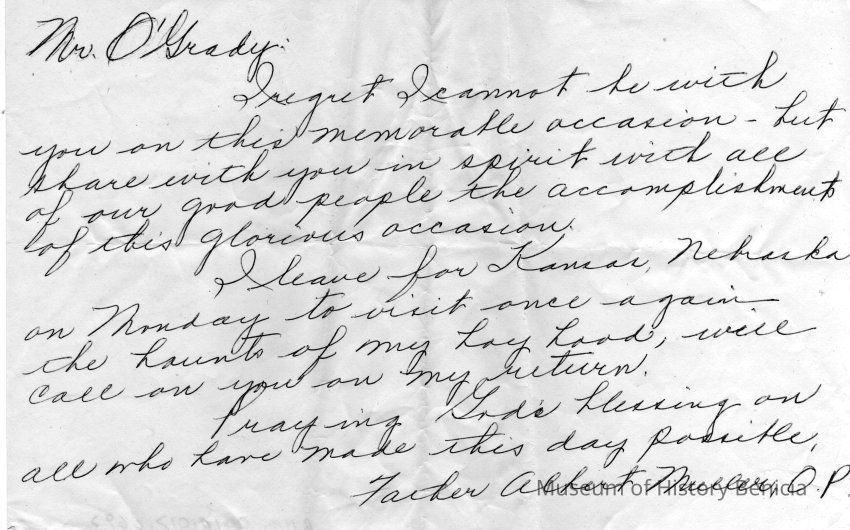 Mr. O'Grady:
I regret I cannot be with
you on this memorable occasion - but
share with you in spirit with all
of our good people the accomplishments
of this glorious occasion.
I leave for Kansas, Nebraska
on Monday to visit once again
the haunts of my boy hood, will
call on you on my return.
Praying God's blessing on
all who have made this day possible,
Father Albert O.P.
Museum of History Benicia